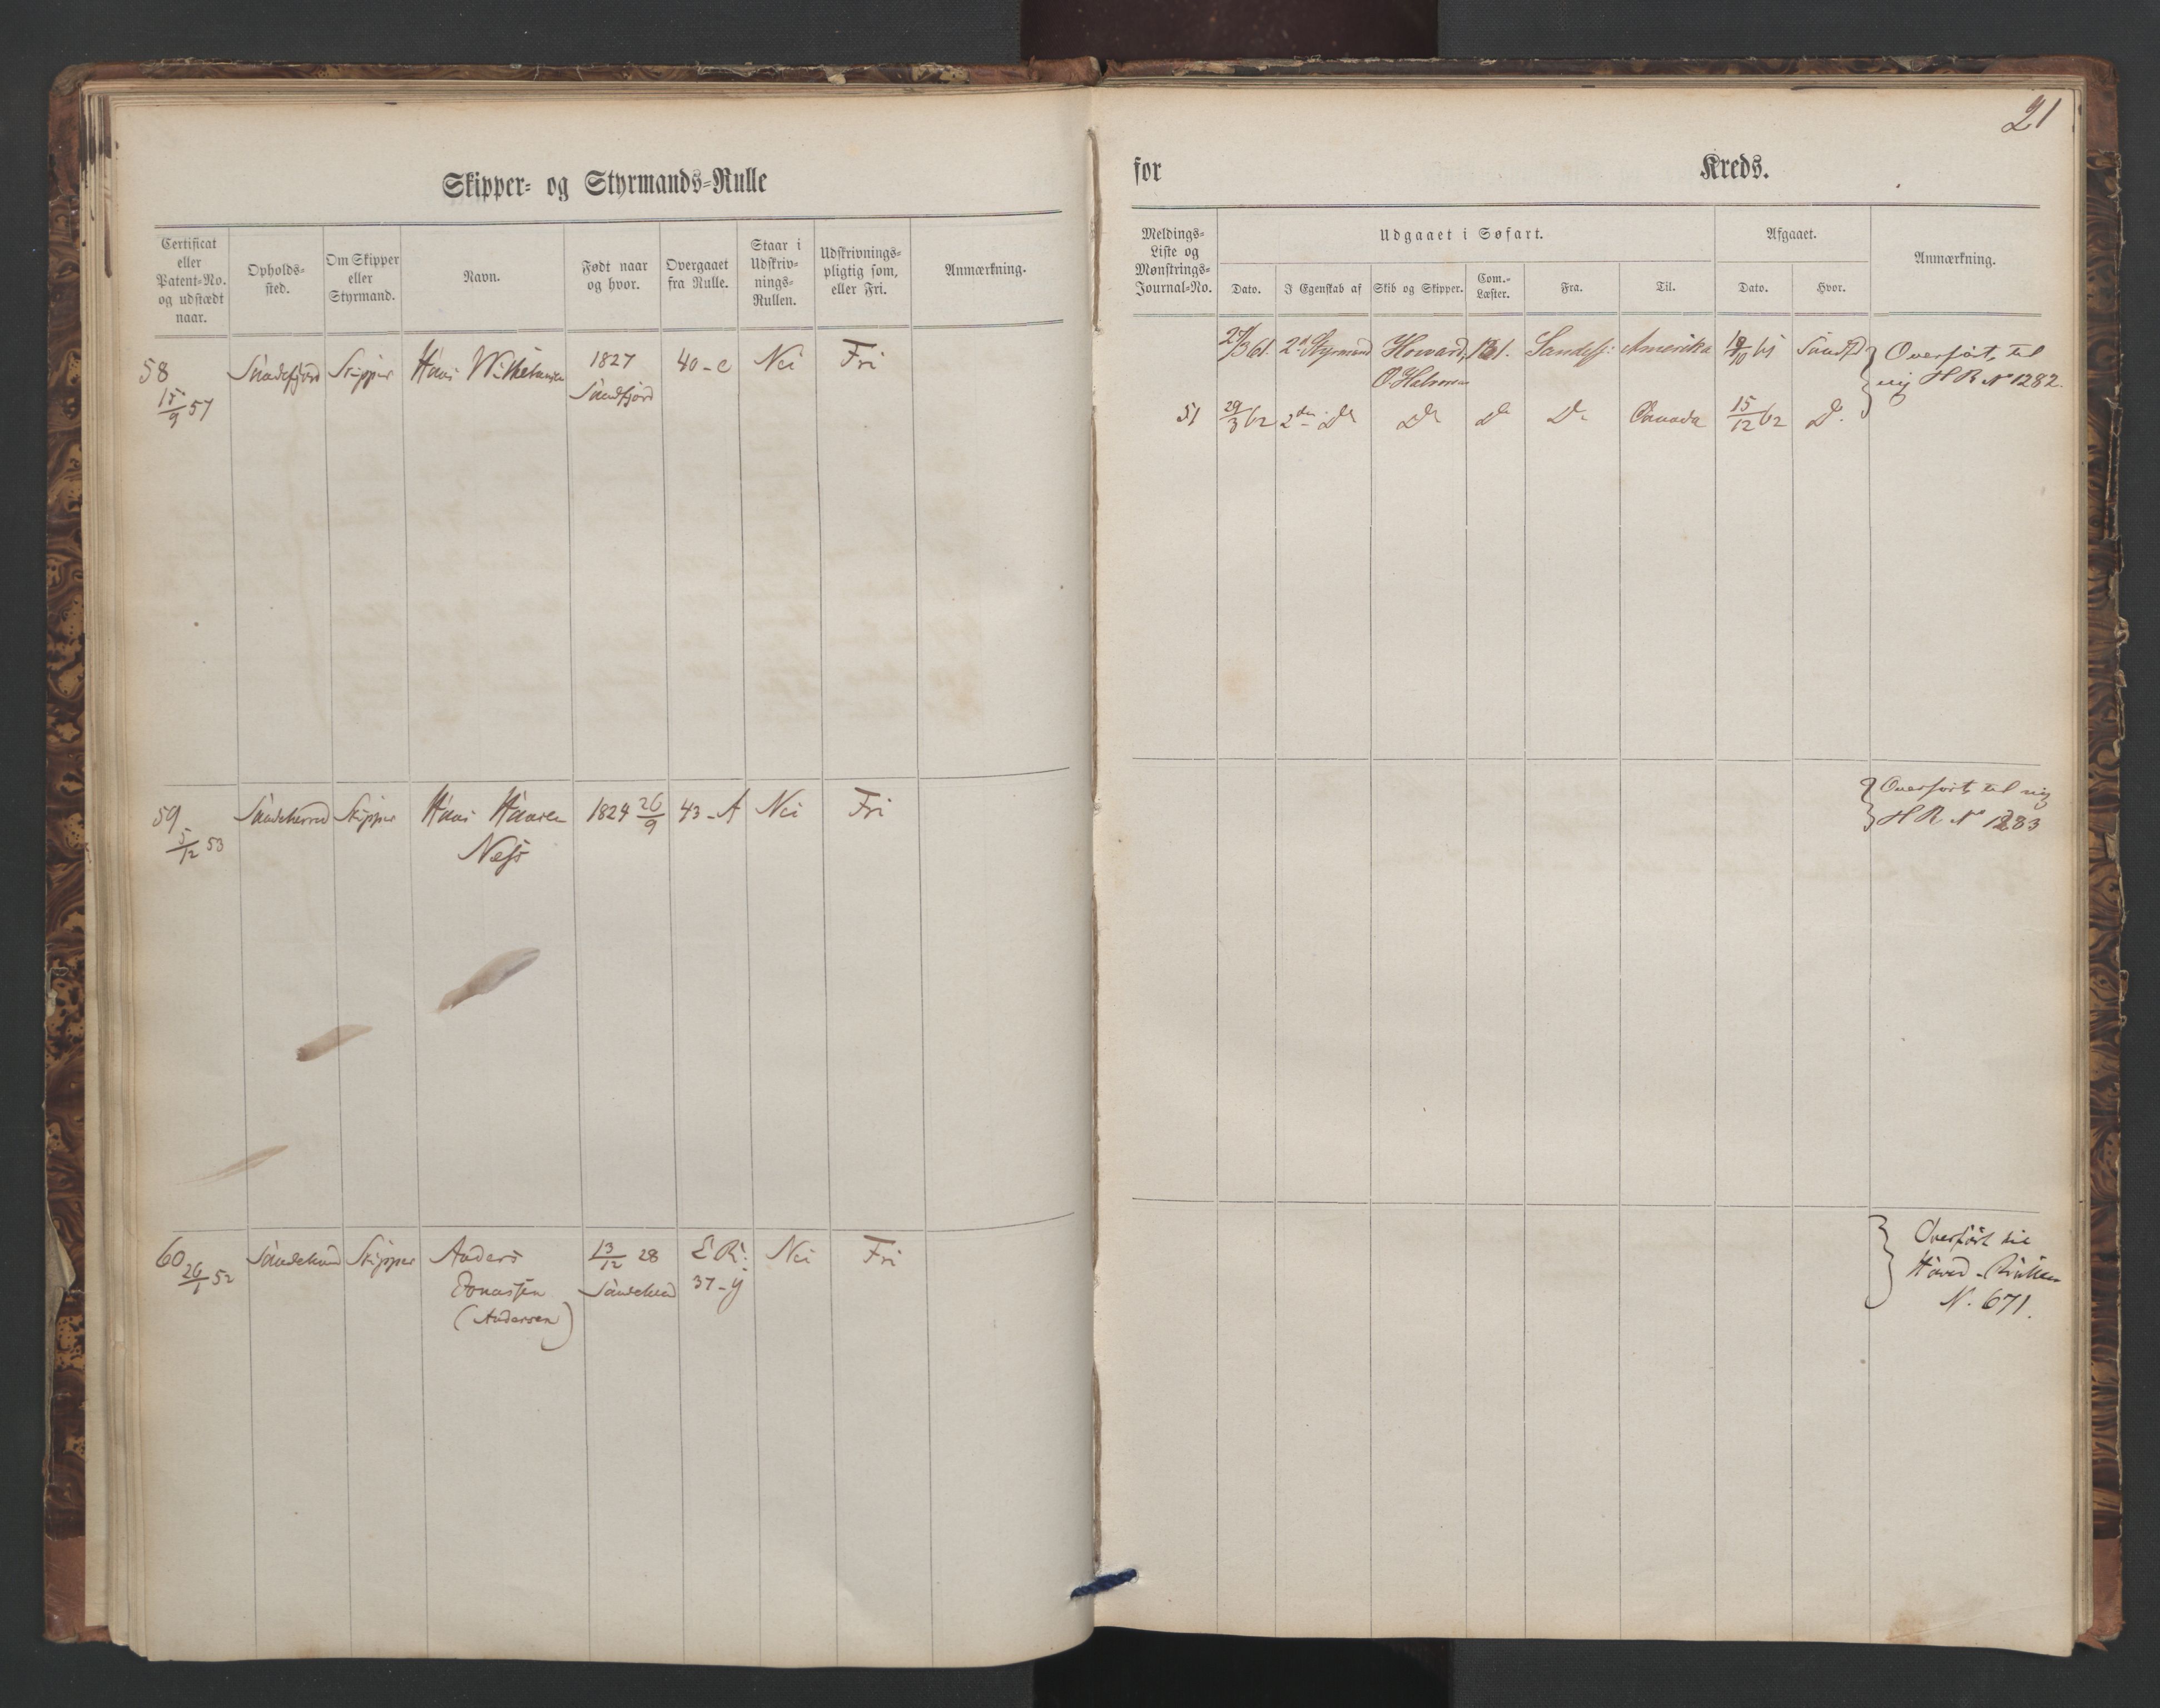 21
Skipper- og Styrmands-Rulle
for Kreds.
Certificat eller Patent-No. og udstædt naar.
Opholds-sted.
Om Skipper eller Styrmand.
Navn.
Født naar og hvor.
Overgaaet fra Rulle.
Staar i Udskriv-nings-Rullen.
Udskrivnings-pligtig som, eller Fri.
Anmærkning.
Meldings-Liste og Mønstrings-Journal-No.
Udgaaet i Søfart.
Dato.
I Egenskab af
Skib og Skipper.
Com.-Læster.
Fra.
Til.
Afgaaet.
Dato.
Hvor.
Anmærkning.
58 Sandefjord Skipper Hans Wilhelmsen 1827 40-c Nei Fri
15/9 57 Sandfjord
3 61. 2d Styrmand Howard, Sandefj: Amerika Sandfd Overført til
ny H R No 1282.
51 29/3 62 2den Do Do Do Do Canada 15/12 62 Do.
59 Sandeherred Skipper Hans Hansen 1824 26/9 43-A Nei Fri
5/12 53 Næss
Overført til ny
H R No 1283
60 Sandeherred Skipper Anders 13/12 28 E.R. Nei Fri
26/1 52 Jonassen Sandeherred 37-y
(Andersen)
Overført til
Hoved-Rullen
N. 671.